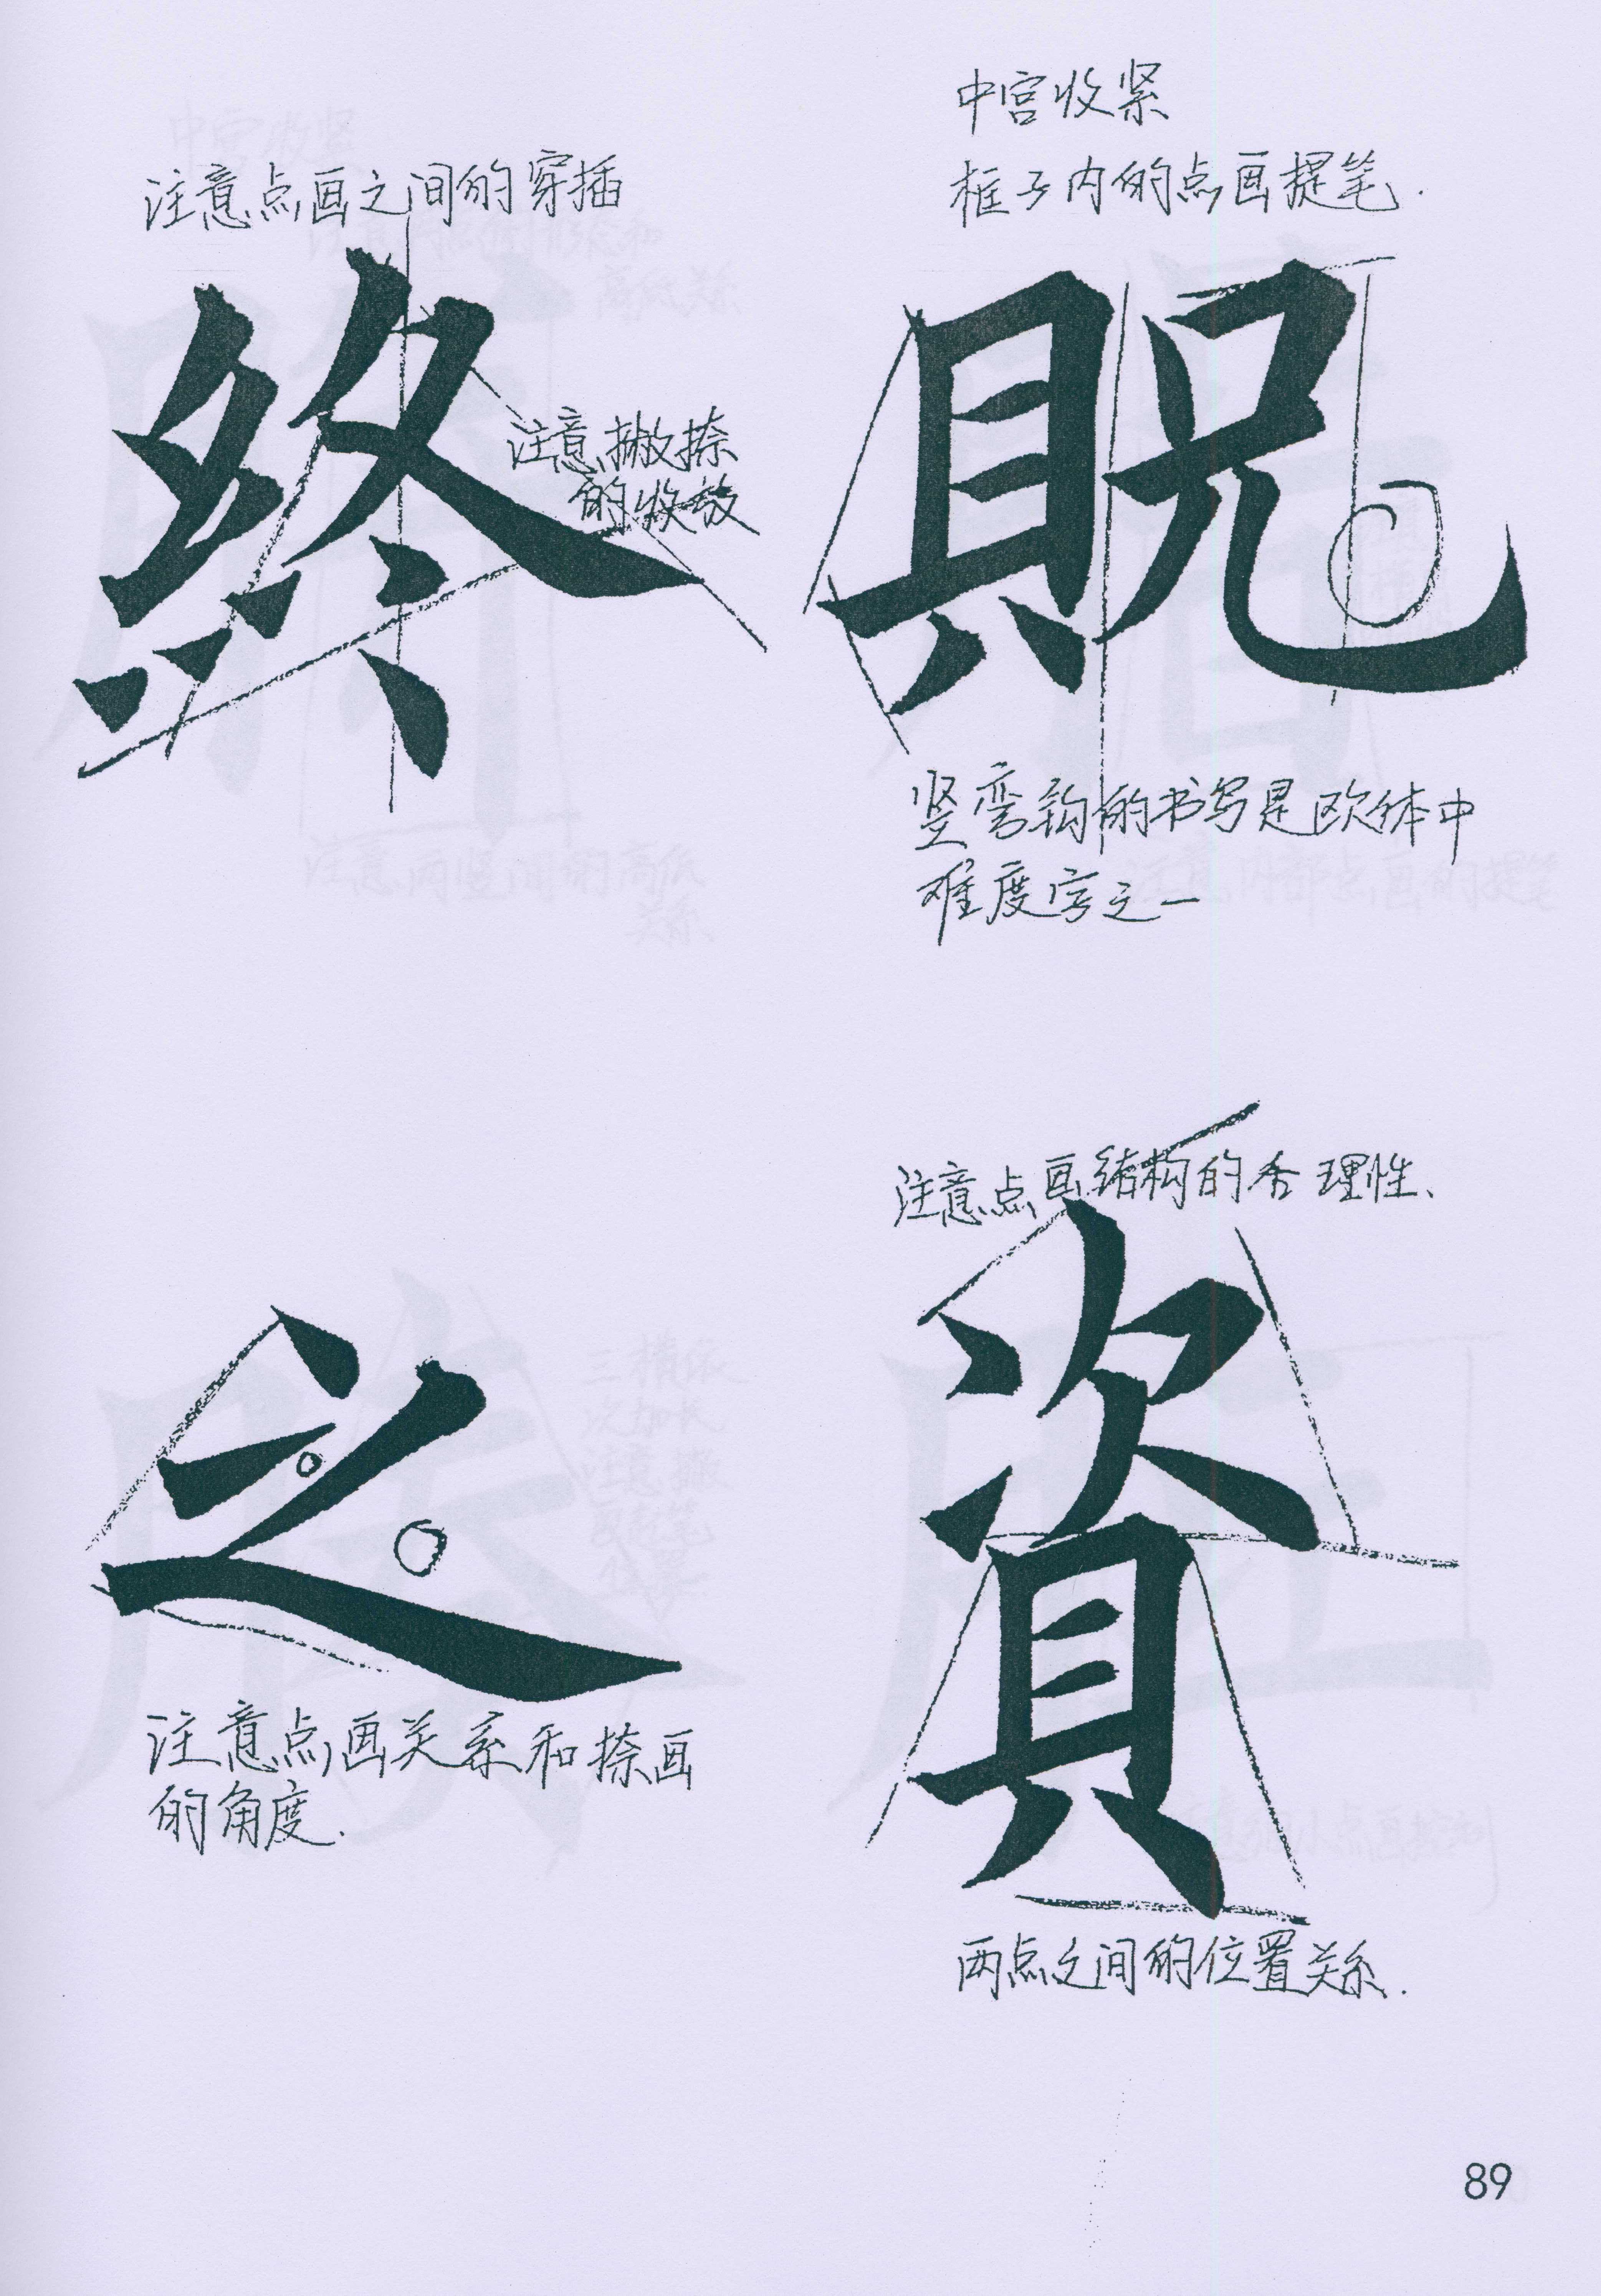 注意点画之间的穿插
終
注意撇捺
的收放
中宫收紧
框子内的点画提笔.
貺
竖弯钩的书写是欧体中
难度字之一
之
注意点画关系和捺画
的角度.
注意点画结构的合理性、
資
两点之间的位置关系.
89